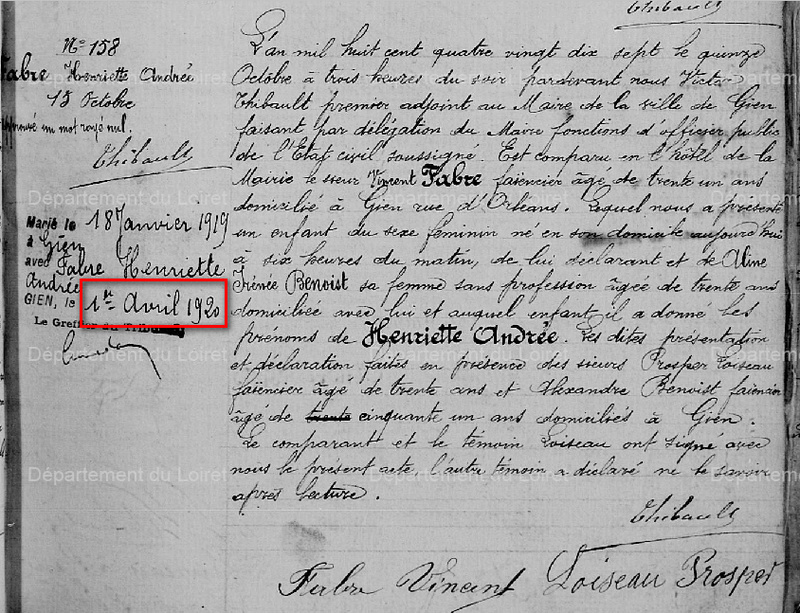 Thibault
N° 158
Fabre Henriette Andrée
15 Octobre
approuvé un mot rayé nul.
Thibault
Marié le 18 Janvier 1919
à Gien
avec Fabre Henriette
Andrée
GIEN, le 1er Avril 1920
Le Greffier du Tribunal
L'an mil huit cent quatre vingt dix sept le quinze
Octobre à trois heures du soir pardevant nous Victor
Thibault premier adjoint au Maire de la ville de Gien
faisant par délégation du Maire fonctions d'officier public
de l'Etat civil soussigné. Est comparu en l'hôtel de la
Mairie le sieur Vincent Fabre faïencier âgé de trente un ans
domicilié à Gien rue d'Orléans. Lequel nous a présenté
un enfant du sexe féminin né en son domicile aujourd'hui
à six heures du matin, de lui déclarant et de Aline
Irénée Benoist sa femme sans profession âgée de trente ans
domiciliée avec lui et auquel enfant il a donné les
prénoms de Henriette Andrée. Les dites présentation
et déclaration faites en présence des sieurs Prosper Loiseau
faïencier âgé de trente ans et Alexandre Benoist faïencier
âgé de trente cinquante un ans domiciliés à Gien.
Le comparant et le témoin Loiseau ont signé avec
nous le présent acte, l'autre témoin a déclaré ne le savoir
après lecture.
Thibault
Fabre Vincent Loiseau Prosper
Département du Loiret
Département du Loiret
Département du Loiret
Département du Loiret
Département du Loiret